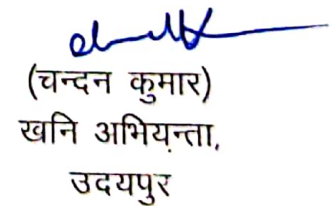 (चन्दन कुमार)
खनि अभियन्ता,
उदयपुर